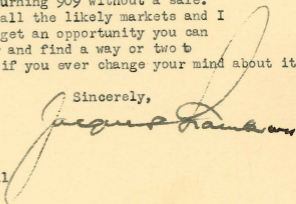 urning 909 without a sale.
all the likely markets and I
get an opportunity you can
and find a way or two to
if you ever change your mind about it
Sincerely,
Jacques